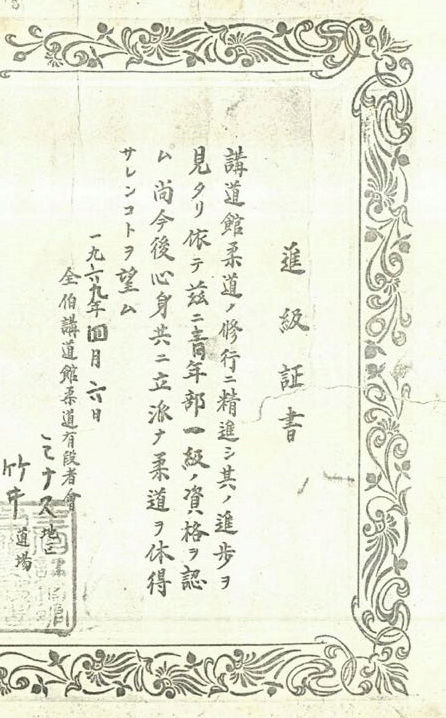 進級証書
講道館柔道ノ修行ニ精進シ其ノ進歩ヲ
見タリ依テ茲ニ青年部一級ノ資格ヲ認
ム尚今後心身共ニ立派ナ柔道ヲ体得
サレンコトヲ望ム
一九六九年四月六日
全伯講道館柔道有段者會
ミナス地区
竹中道場